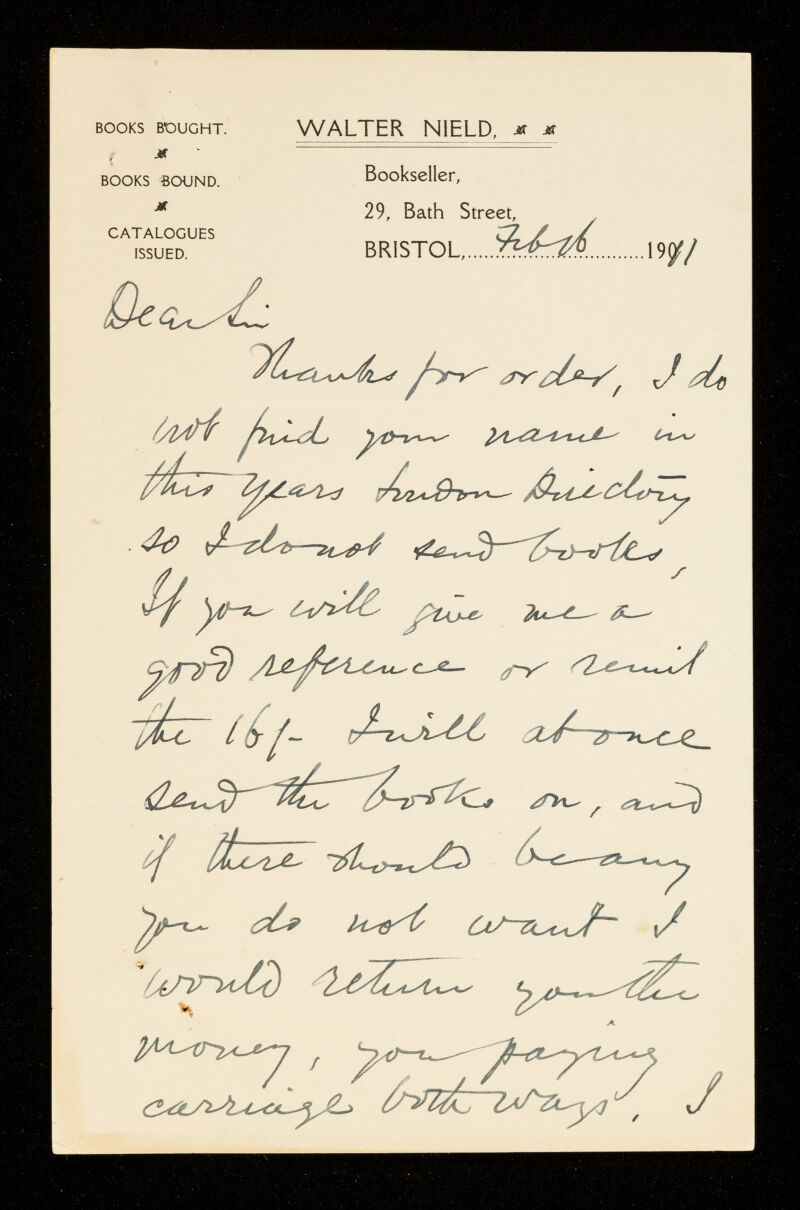 BOOKS BOUGHT.
BOOKS BOUND.
CATALOGUES
ISSUED.
WALTER NIELD,
Bookseller,
29, Bath Street,
BRISTOL, Feb 16 1911
Dear Sir
Thanks for order, I do
not find your name in
this years London Directory
so I do not send books,
If you will give me a
good reference or remit
the 16/- I will at once
send the books on, and
if there should be any
you do not want I
would return you the
money, you paying
carriage both ways. I